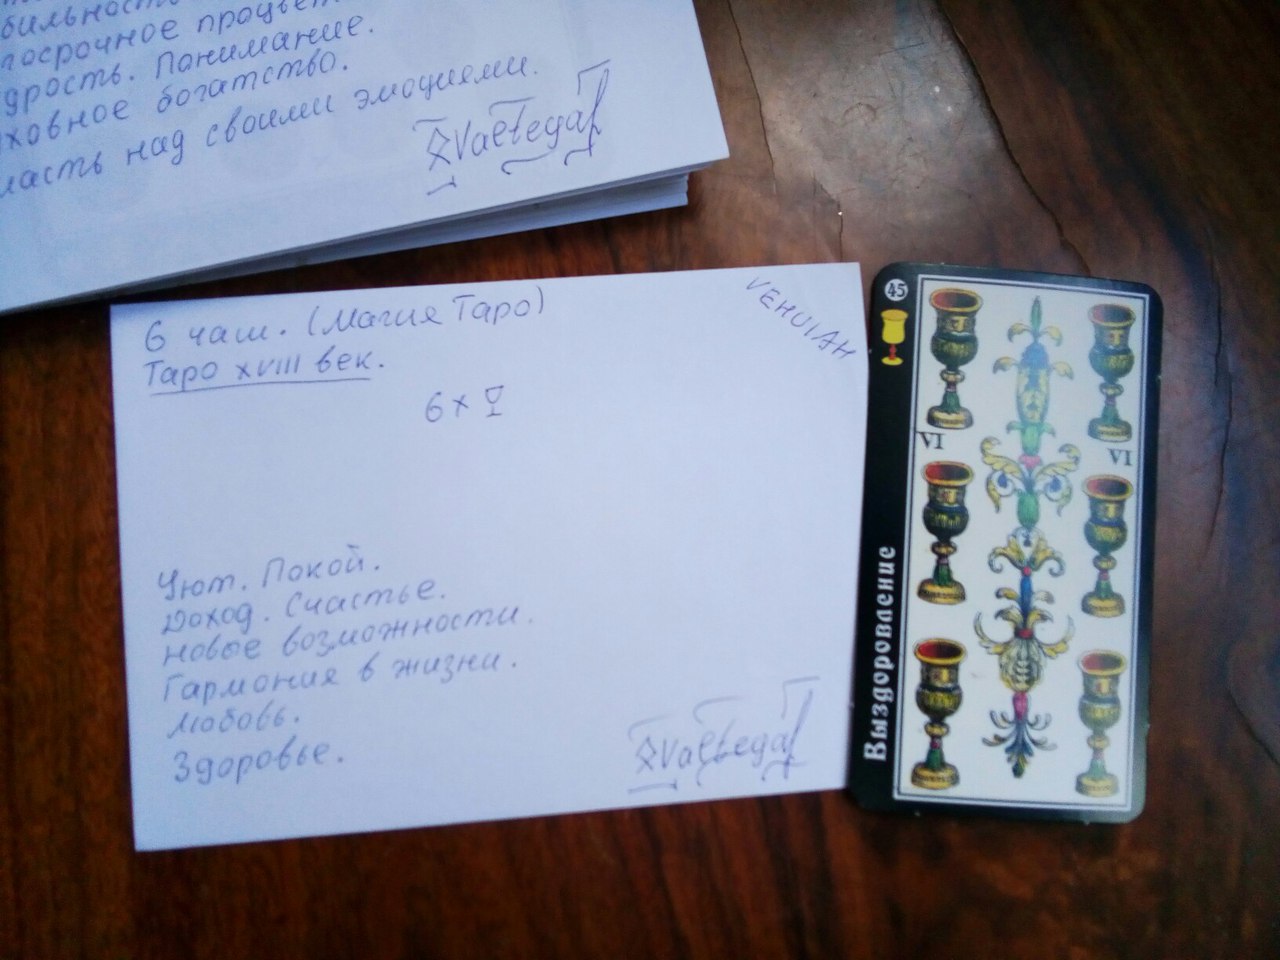 посрочное
дрость. Понимание.
ховное богатство.
ласть над своими эмоциями.
Valtegaf
6 чаш. (Магия Таро)
Таро XVIII век.
VEHUIAH
6 x
Уют. Покой.
Доход. Счастье.
Новое возможности.
Гармония в жизни.
Любовь.
Здоровье.
Valtegaf
45
VI
VI
Выздоровление